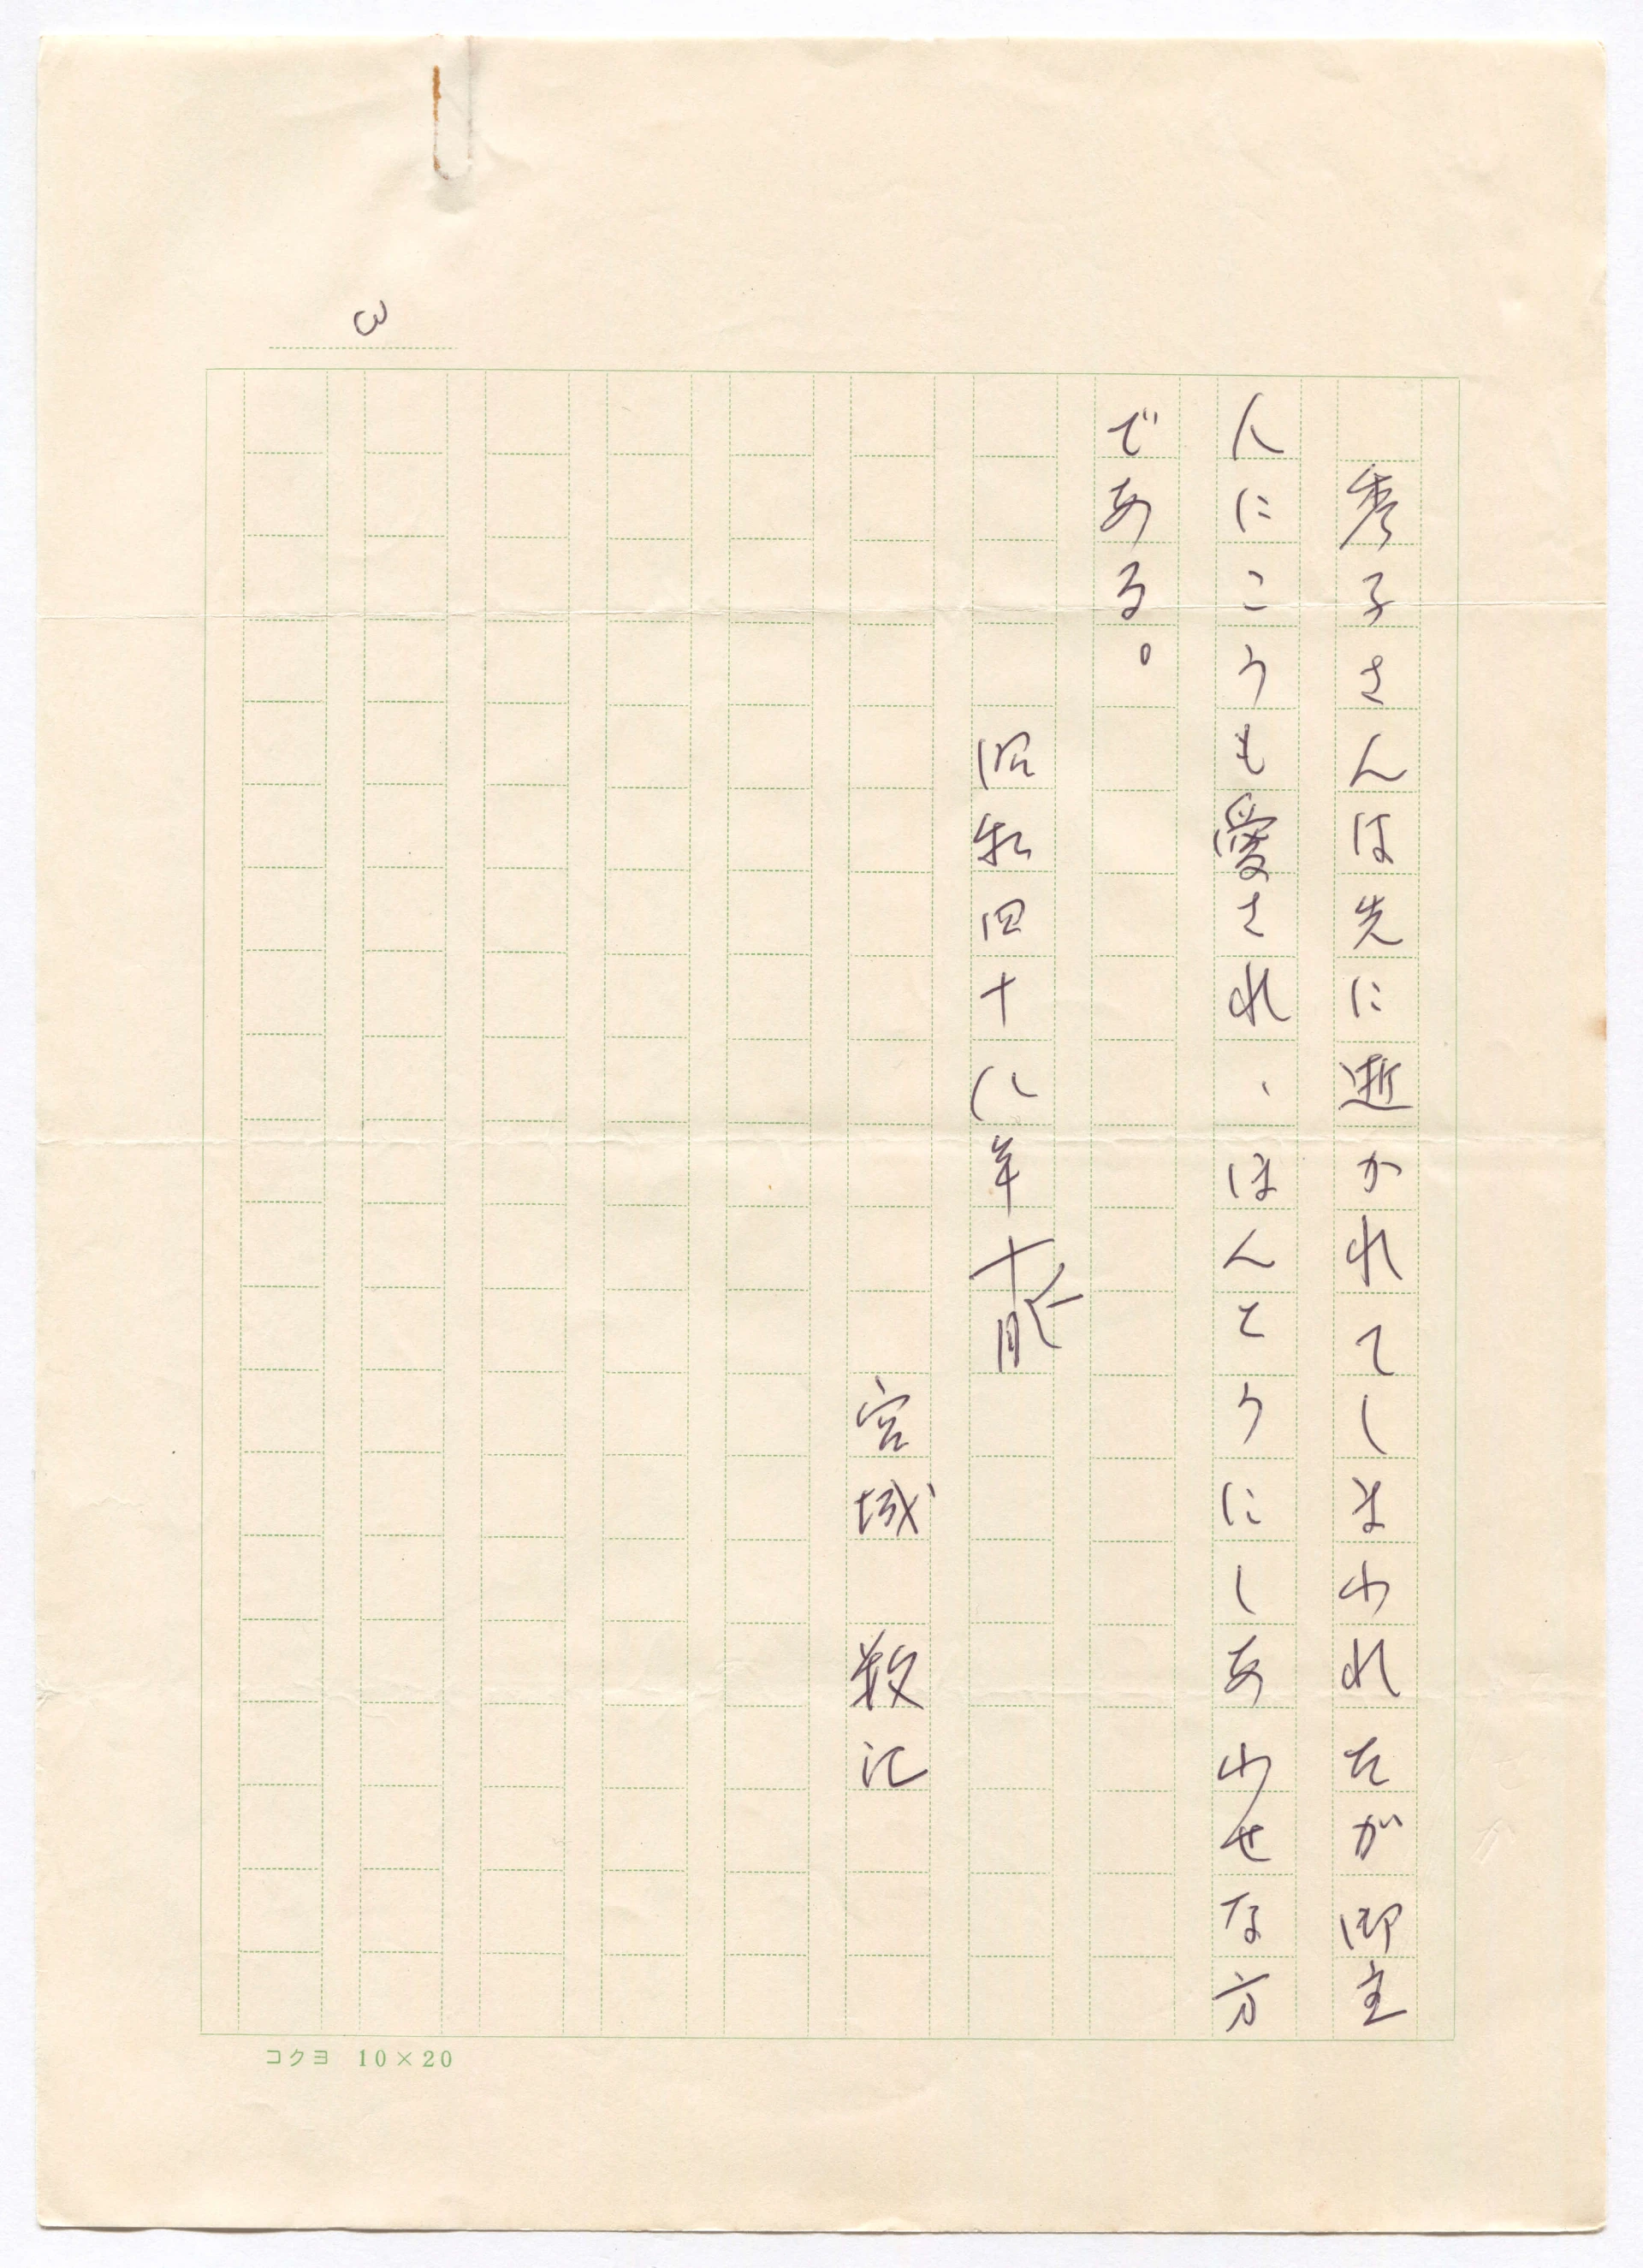 3
秀子さんは先に逝かれてしまわれたが御主
人にこうも愛され、ほんとうにしあわせな方
である。
昭和四十八年十一月
宮城 数江
コクヨ 10×20